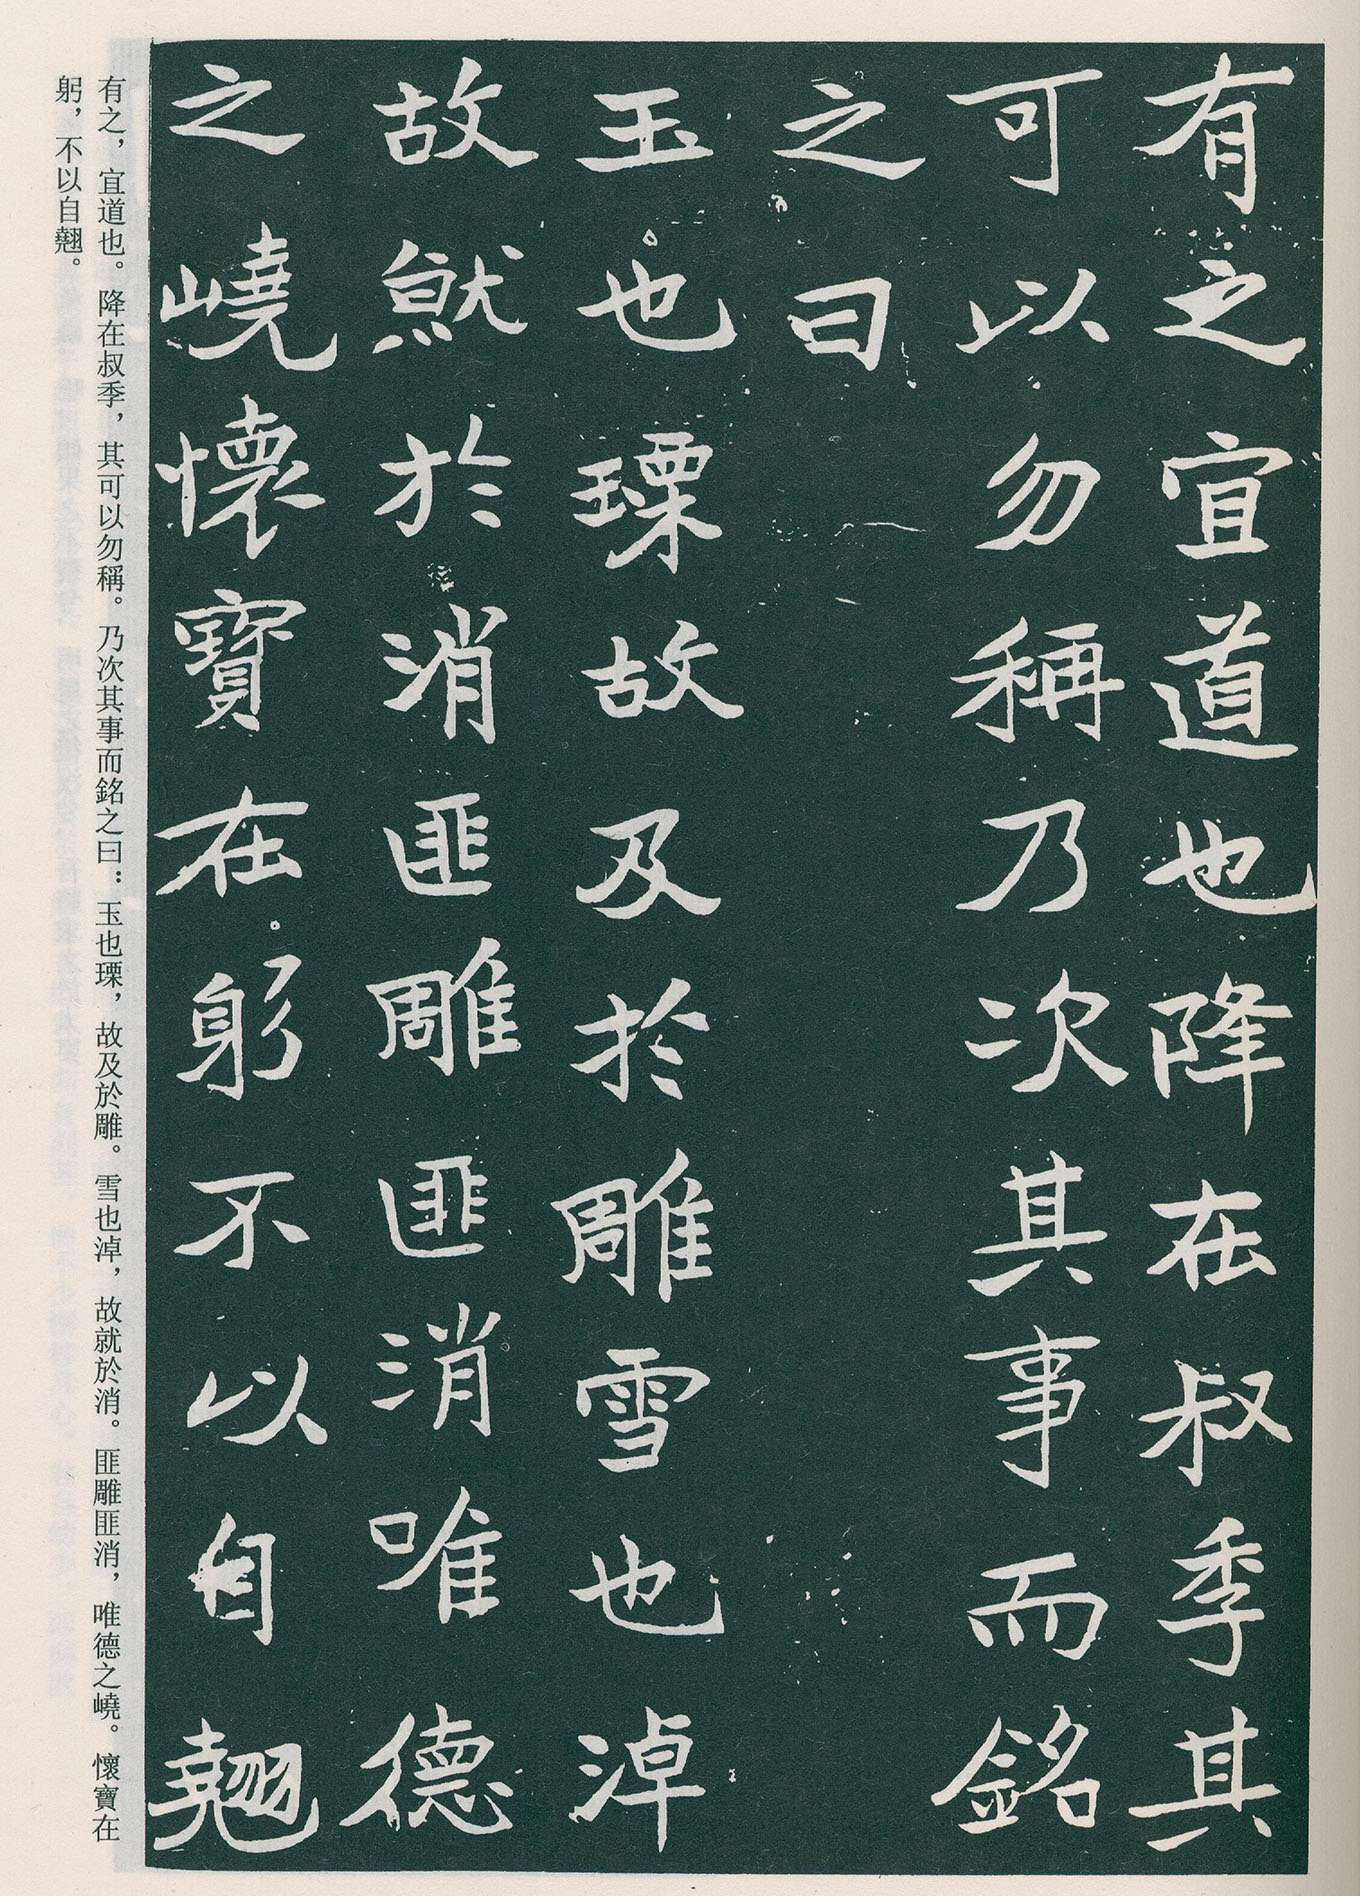 有之宜道也降在叔季其
可以勿稱乃次其事而銘
之曰
玉也瑮故及於雕雪也淖
故就於消匪雕匪消唯德
之嶢懷寶在躬不以自翹
有之，宜道也。降在叔季，其可以勿稱。乃次其事而銘之曰：玉也瑮，故及於雕。雪也淖，故就於消。匪雕匪消，唯德之嶢。懷寶在
躬，不以自翹。